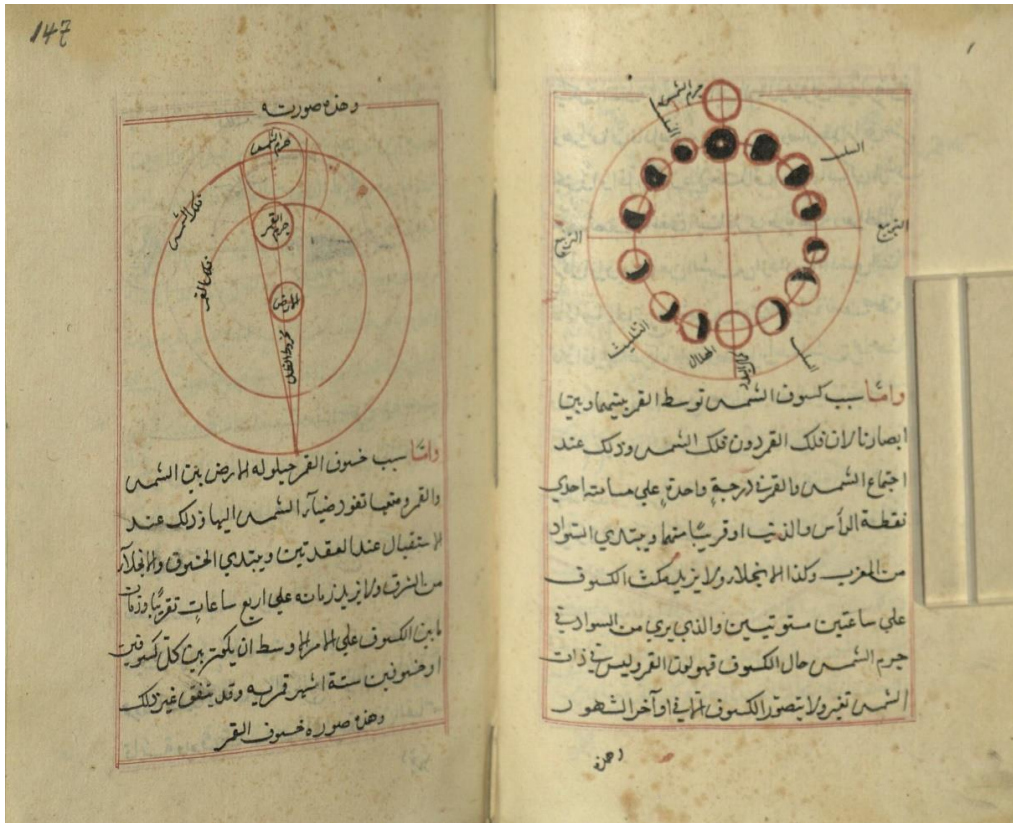 جرم الشمس
التربيع
التربيع
التثليث
الهلال
واما سبب كسوف الشمس توسط القمر بينها وبين
ابصارنا لان فلك القمر دون فلك الشمس وذلك عند
اجتماع الشمس والقمر في درجة واحدة على مسامتة احدى
نقطة الراس والذنب او قريبا منهما ويبتدي السواد
من المغرب وكذا الانجلاء ولا يزيد مكث الكسوف
على ساعتين مستويتين والذي يرى من السواد في
جرم الشمس حال الكسوف فهو لون القمر وليس في ذات
الشمس تغير ولا يتصور الكسوف الا في اواخر الشهور
وهذه
147
وهذه صورته
جرم الشمس
فلك الشمس
جرم القمر
فلك القمر
الارض
مخروط الظل
واما سبب خسوف القمر حيلولة الارض بين الشمس
والقمر ومنعها نفوذ ضياء الشمس اليها وذلك عند
الاستقبال عند العقدتين ويبتدي الخسوف والانجلاء
من الشرق ولا يزيد زمانه على اربع ساعات تقريبا وزمان
ما بين الكسوف على الامر الاوسط ان يكون بين كل كسوفين
او خسوفين ستة اشهر قمرية وقد يتفق غير ذلك
وهذه صورة خسوف القمر